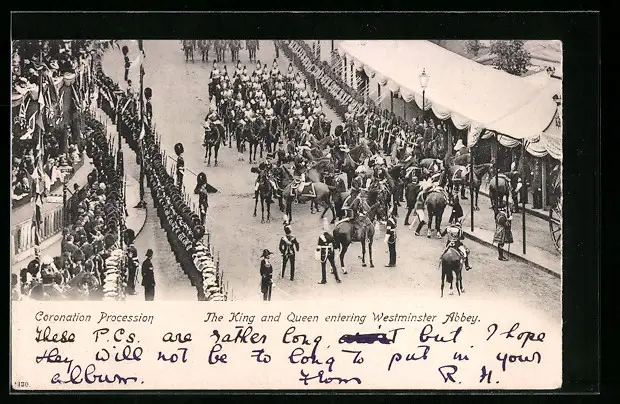 Coronation Procession The King and Queen entering Westminster Abbey.
These P.Cs. are rather long, but I hope
they will not be to long to put in your
album. From R. N.